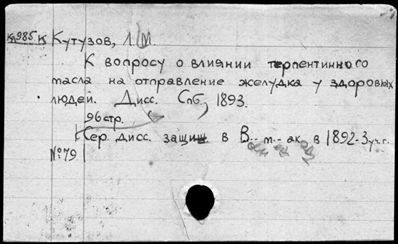 к985 к Кутузов, Л. М.
К вопросу о влиянии терпентинного
масла на отправление желудка у здоровых
людей. Дисс. Спб, 1893.
96 стр.
Сер. дисс. защищ в В.-м.-ак. в 1892-3 уч. г.
№79